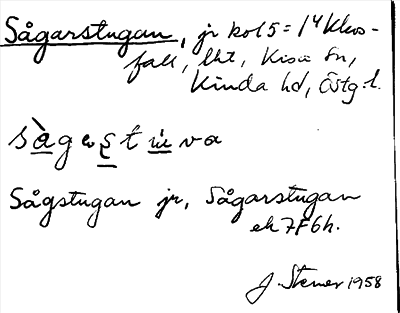 Sågarstugan, jr kol 5 = 1/4 Klevs-
fall, lht, Kisa sn,
Kinda hd, Östg. l.
Sågstugan jr, Sågarstugan
ek 7F6h.
J. Stener 1958